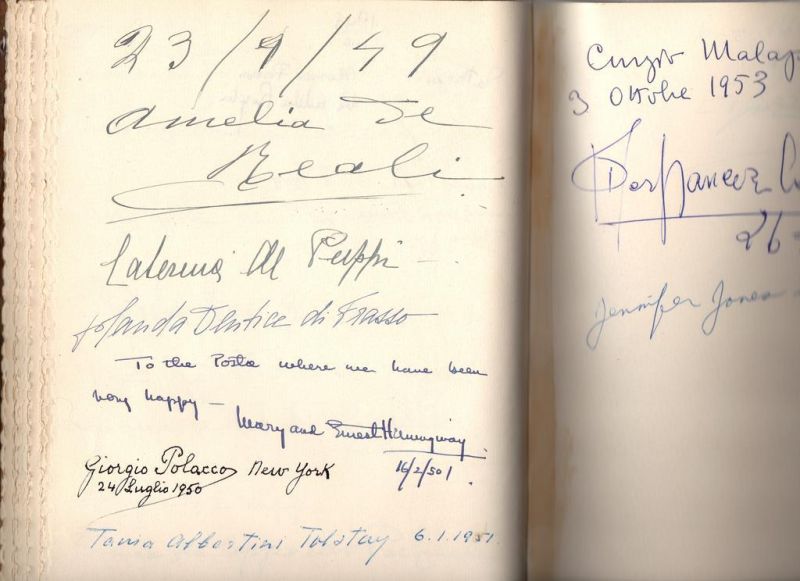 23/9/49
Amelia de
Reali
Caterina
Jolanda Dentice di Frasso
To the Posta where we have been
very happy —
Mary and Ernest Hemingway.
16/2/50
Giorgio Polacco New York
24 Luglio 1950
Tania Albertini Tolstay 6.1.1951
Malap
3 Ottobre 1953
26
Jennifer Jones